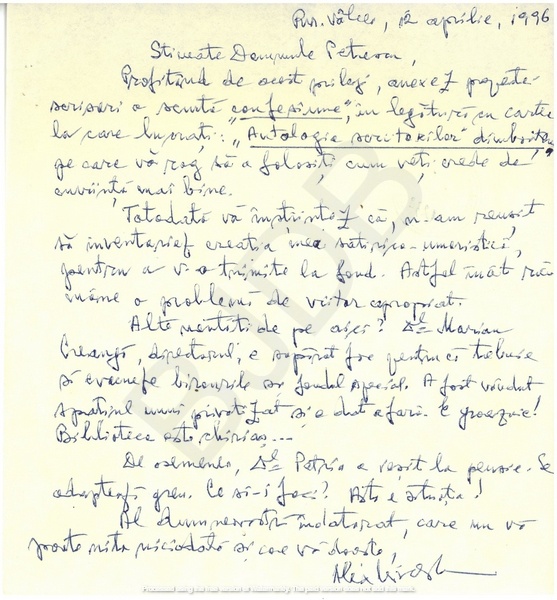 Rm. Vâlcea, 12 aprilie, 1996
Stimate Domnule Petrescu,
Profitând de acest prilej, anexez prezentei
scrisori o scurtă "confesiune", în legătură cu cartea
la care lucrați: "Antologia scriitorilor dîmbovițeni"
pe care vă rog să o folosiți cum veți crede de
cuviință mai bine.
Totodată vă înștiințez că, n-am reușit
să inventariez creația mea satirico-umoristică,
pentru a v-o trimite la fond. Astfel încât ră-
mâne o problemă de viitor apropiat.
Alte noutăți de pe aici? Dl. Marian
Creangă, directorul, e supărat foc pentru că trebuie
să evacueze birourile și fondul special. A fost vândut
spațiul unui privatizat și e dat afară. E groaznic!
Biblioteca este chiriaș...
De asemenea, Dl. Petria a ieșit la pensie. Se
adaptează greu. Ce să-i faci? Asta e situația!
Al dumneavoastră îndatorat, care nu vă
poate uita niciodată și care vă dorește,
BJDB